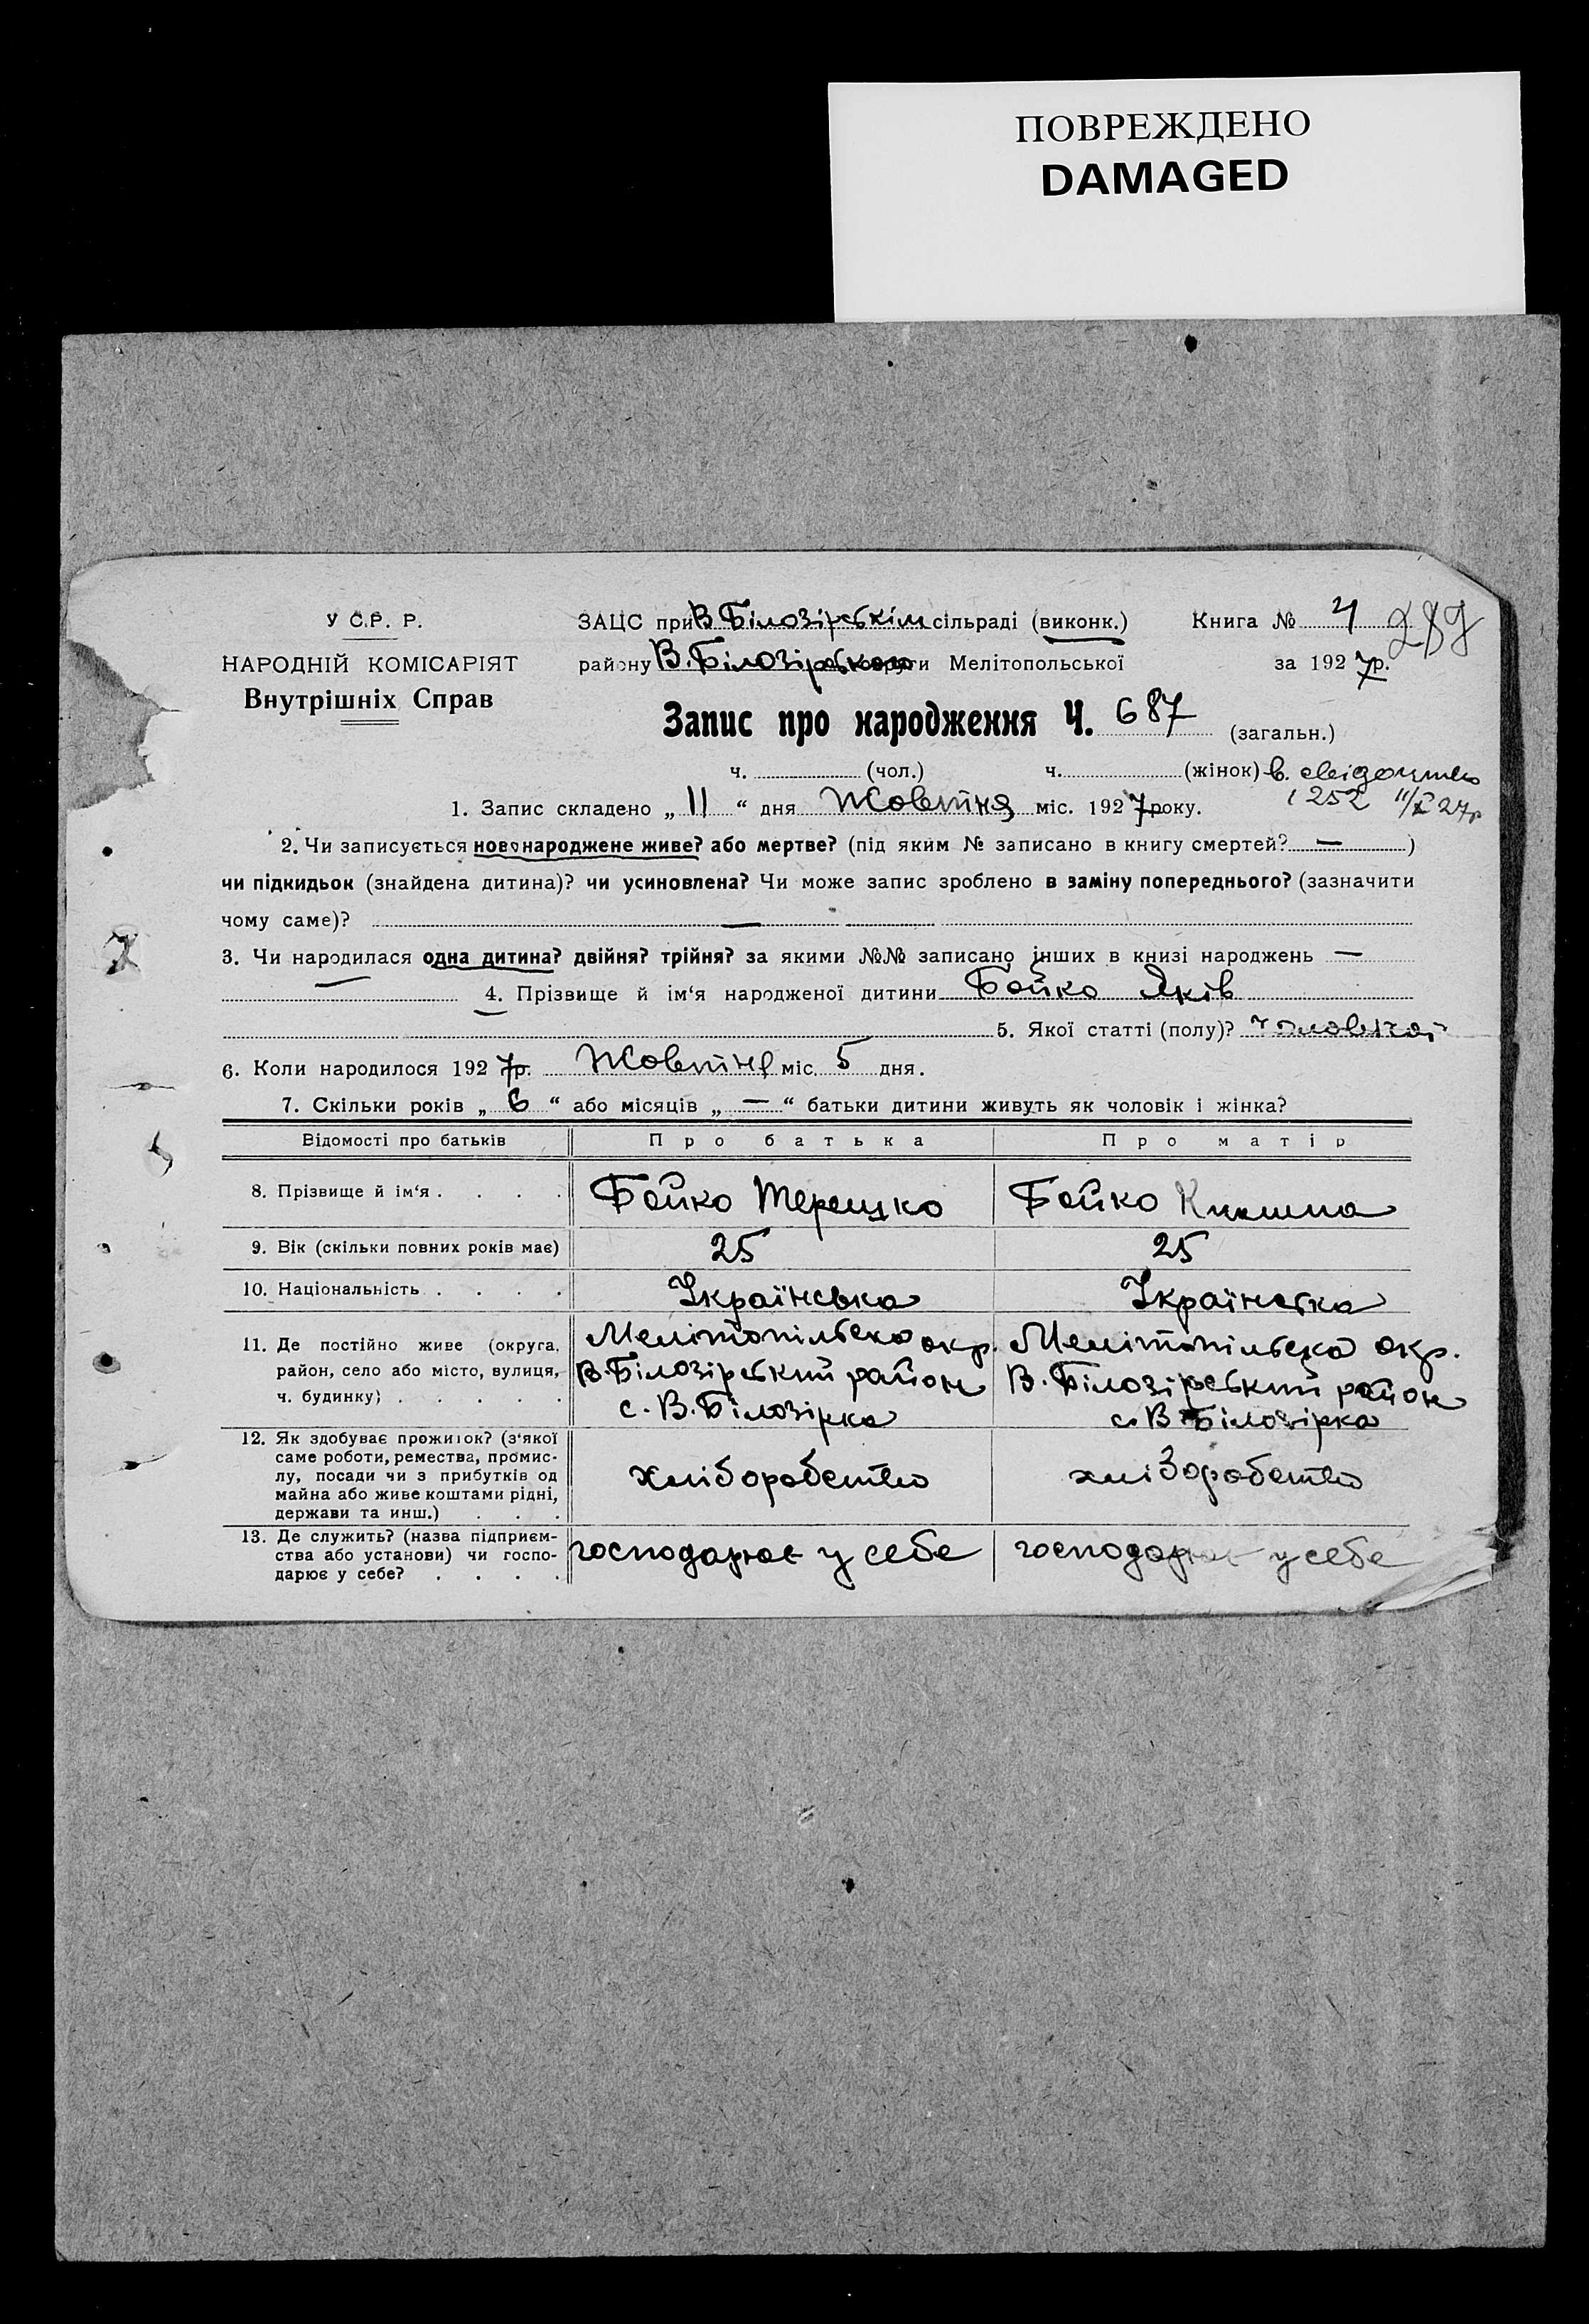 ПОВРЕЖДЕНО
DAMAGED
У С.Р. Р.
НАРОДНІЙ КОМІСАРІЯТ
Внутрішніх Справ
ЗАЦС при В Білозірськім сільраді (виконк.)
району В. Білозірського округи Мелітопольської
Книга № 4 287
за 1927р.
Запис про народження Ч. 687 (загальн.)
ч. (чол.) ч. (жінок) в. свідоцтво
1252 11/X 27р
1. Запис складено „ 11 “ дня Жовтня міс. 1927 року.
2. Чи записується новонароджене живе? або мертве? (під яким № записано в книгу смертей? — )
чи підкидьок (знайдена дитина)? чи усиновлена? Чи може запис зроблено в заміну попереднього? (зазначити
чому саме)? —
3. Чи народилася одна дитина? двійня? трійня? за якими №№ записано інших в книзі народжень —
— 4. Прізвище й ім‘я народженої дитини Бойко Яків
5. Якої статті (полу)? чоловічої
6. Коли народилося 1927р. Жовтня міс. 5 дня.
7. Скільки років „ 6 “ або місяців „ — “ батьки дитини живуть як чоловік і жінка?
Відомості про батьків Про батька Про матір
8. Прізвище й ім‘я . . . . Бойко Терешко Бойко
9. Вік (скільки повних років має) 25 25
10. Національність . . . . Українська Українська
11. Де постійно живе (округа, район, село або місто, вулиця, ч. будинку) . . . . .
Мелітопільська окр.
В. Білозірський район
с. В. Білозірка
Мелітопільська окр.
В. Білозірський район
с. В Білозірка
12. Як здобуває прожиток? (з‘якої
саме роботи, ремества, промис-
лу, посади чи з прибутків од
майна або живе коштами рідні,
держави та инш.) . . .
хліборобство хліборобство
13. Де служить? (назва підприєм-
ства або установи) чи госпо-
дарює у себе? . . . .
господарює у себе господарює у себе